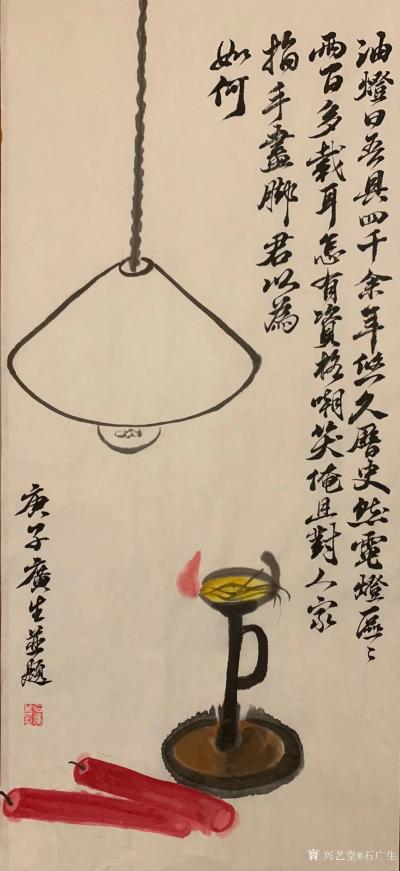 油燈曰吾具四千余年悠久歷史然電燈區〻
兩百多載耳怎有資格嘲笑俺且對人家
指手畫脚君以為
如何
庚子廣生並題
兴艺堂@石广生